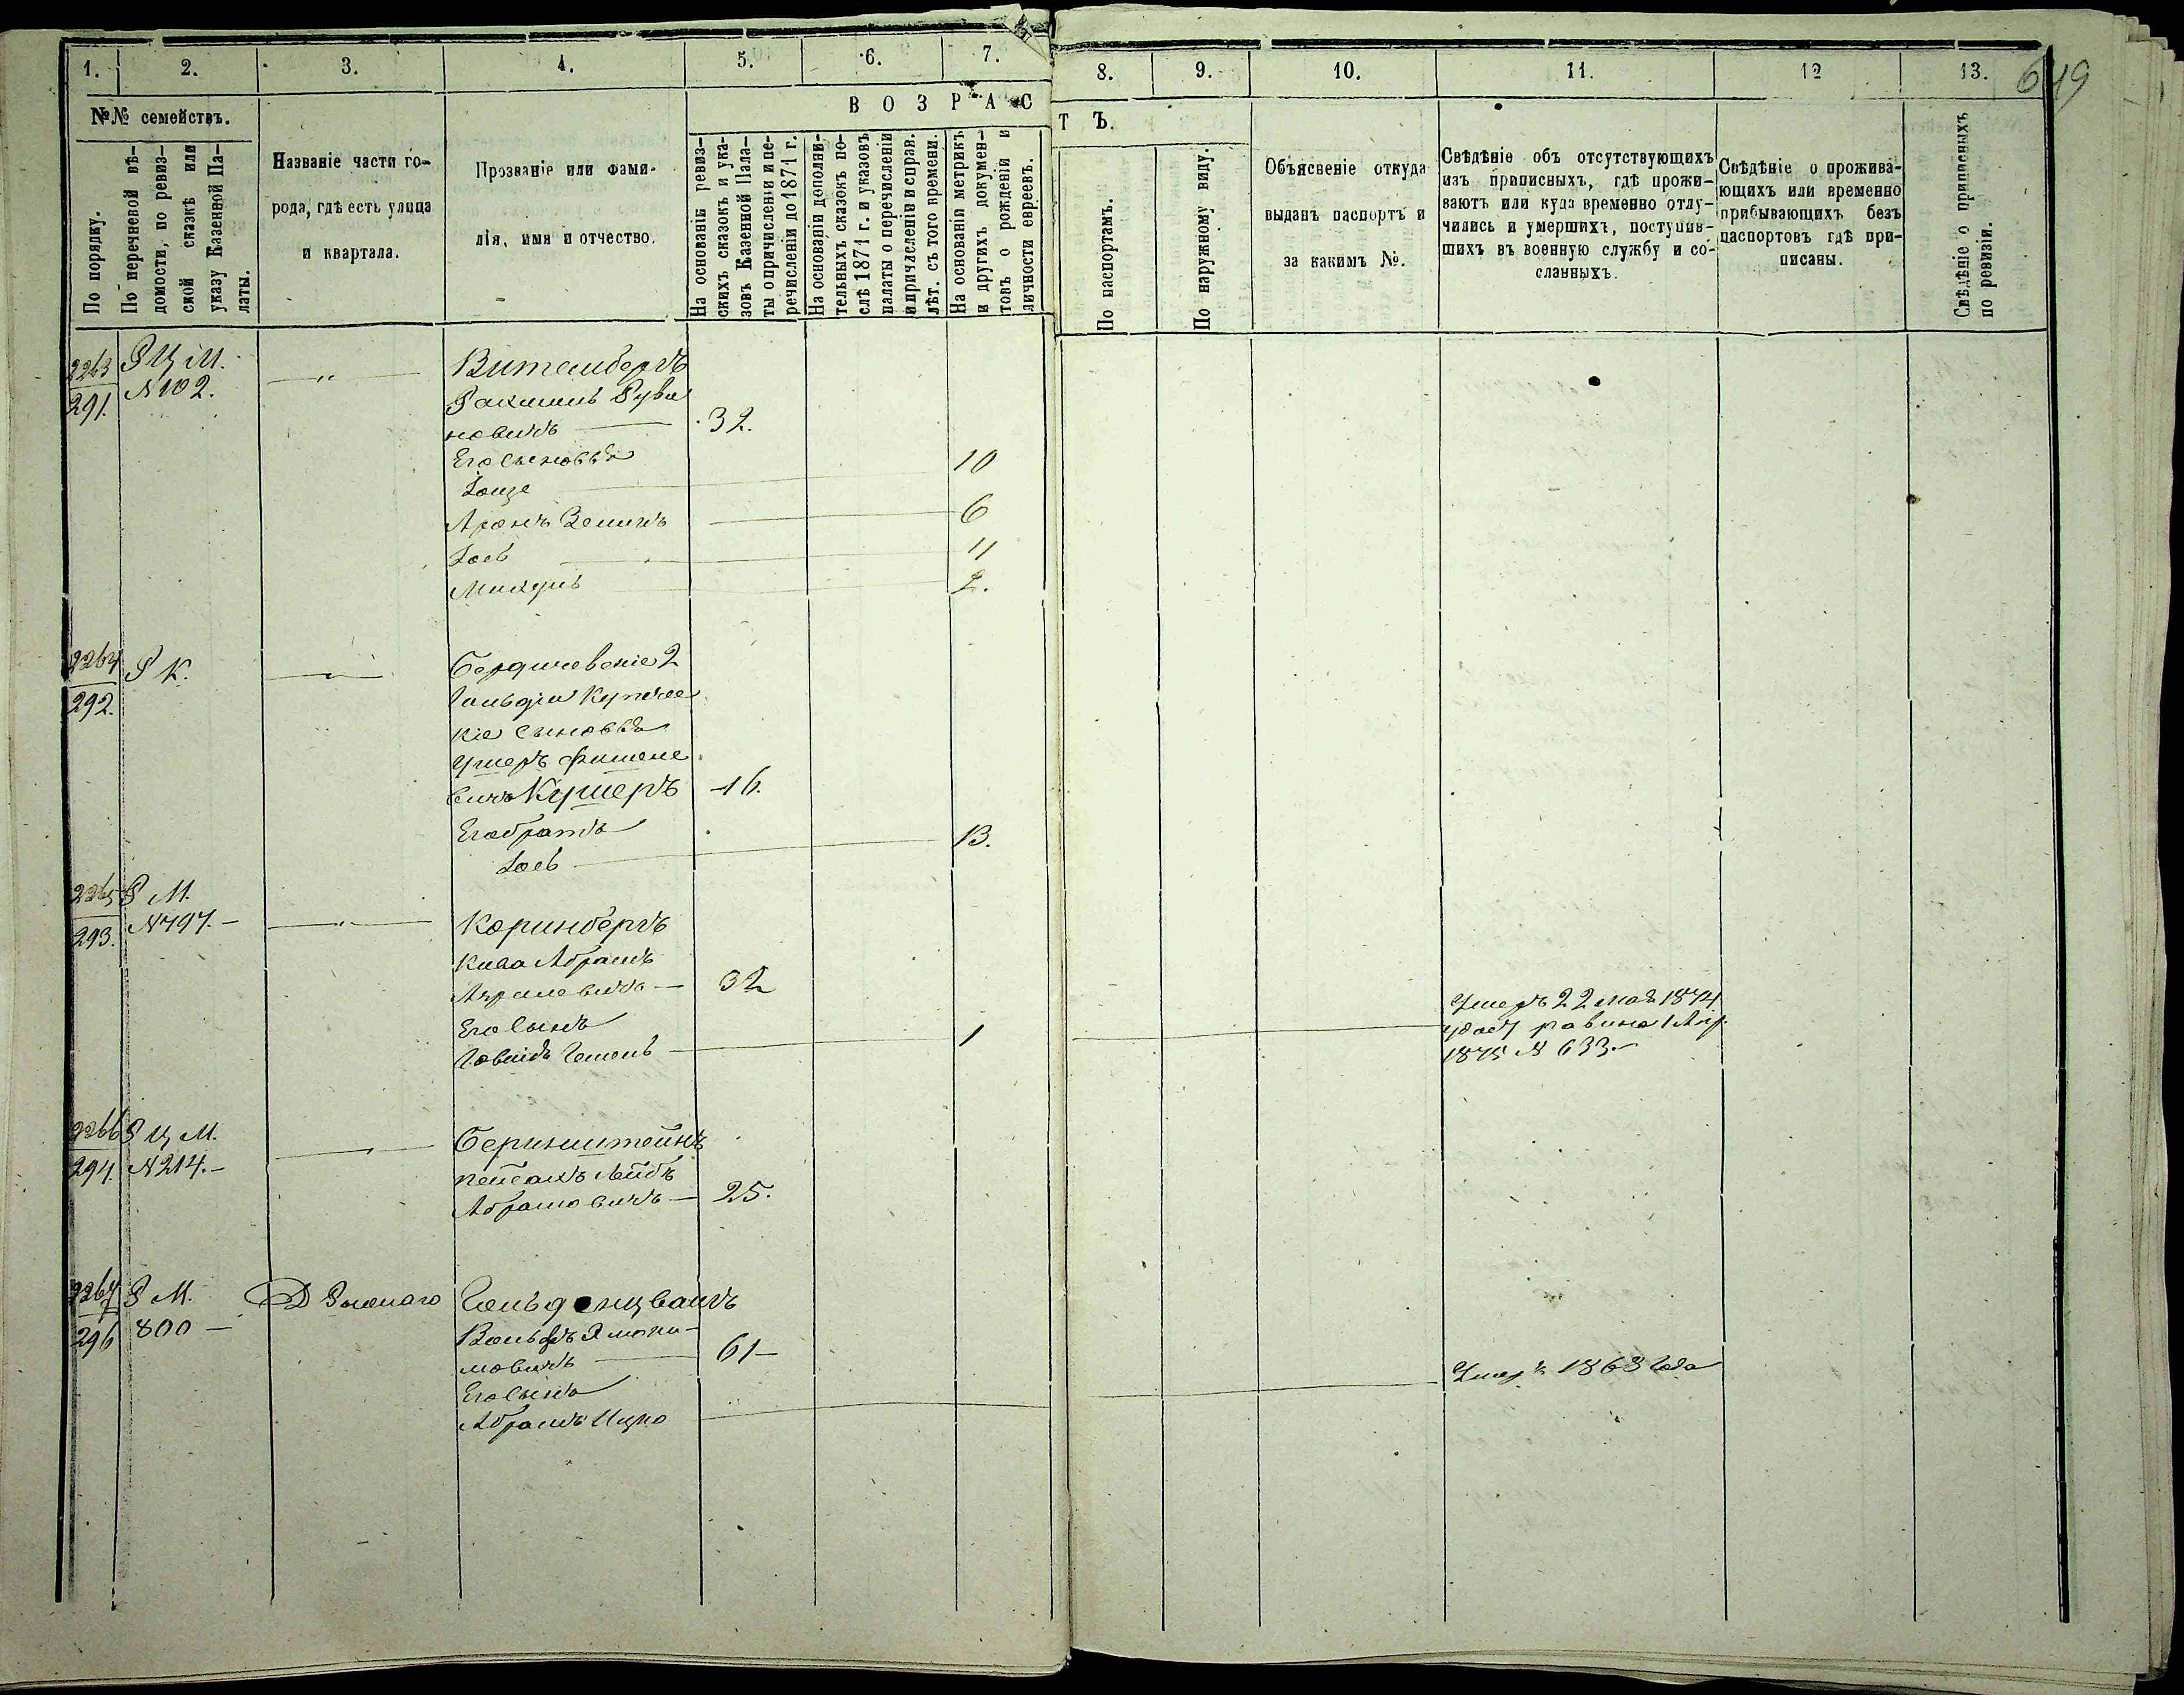 1. 2. 3. 4. 5. 6. 7.
8. 9. 10. 11. 12 13. 649
№№ семействъ.
По порядку.
По перечневой вѣ-
домости, по ревиз-
ской сказкѣ или
указу Казенной Па-
латы.
Названіе части го-
рода, гдѣ есть улица
и квартала.
Прозваніе или фами-
лія, имя и отчество.
В О З Р А С
Т Ъ.
На основаніи ревиз-
скихъ сказокъ и ука-
зовъ Казенной Пала-
ты о причисленіи и пе-
речисленіи до 1871 г.
На основаніи дополни-
тельныхъ сказокъ по-
слѣ 1871 г. и указовъ
палаты о перечисленіи
и причисленіи и справ.
лѣт. съ того времени.
На основаніи метрикъ
и другихъ докумен-
товъ о рожденіи и
личности евреевъ.
По паспортамъ.
По наружному виду.
Объясненіе откуда
выданъ паспортъ и
за какимъ №.
Свѣдѣніе объ отсутствующихъ
изъ приписныхъ, гдѣ прожи-
ваютъ или куда временно отлу-
чились и умершихъ, поступив-
шихъ въ военную службу и со-
сланныхъ.
Свѣдѣніе о прожива-
ющихъ или временно
прибывающихъ безъ
паспортовъ гдѣ при-
писаны.
Свѣдѣніе о приписныхъ
по ревизіи.
2263 Р Ц М. — " — Витембергъ
291. № 102.
Рувиновичъ — 32.
Его сыновья
10
Аронъ Зеликъ — 6
Іосъ — 11
2.
2264 Р К. — " — Бердичевскіе 2
292. гильдіи купечес
кіе сыновья
Ушеръ Фишеле
вичъ Кушеръ 16.
Его братъ
Іосъ — 13.
2265 Р М.
293. № 797. — — " — Коринбергъ
Кива Абрамъ
— 32
Его сынъ
— 1
Умеръ 22 мая 1874
удост равина 1 Апр.
1875 № 633. —
2266 Р Ц М. — " — Беринштейнъ
294. № 214. —
Лейбъ
Абрамовичъ — 25.
2267 Р М.
296 800 —
Вольфъ
мовичъ — 61 —
Его сынъ
Абрамъ Ицко —
Умеръ 1863 года